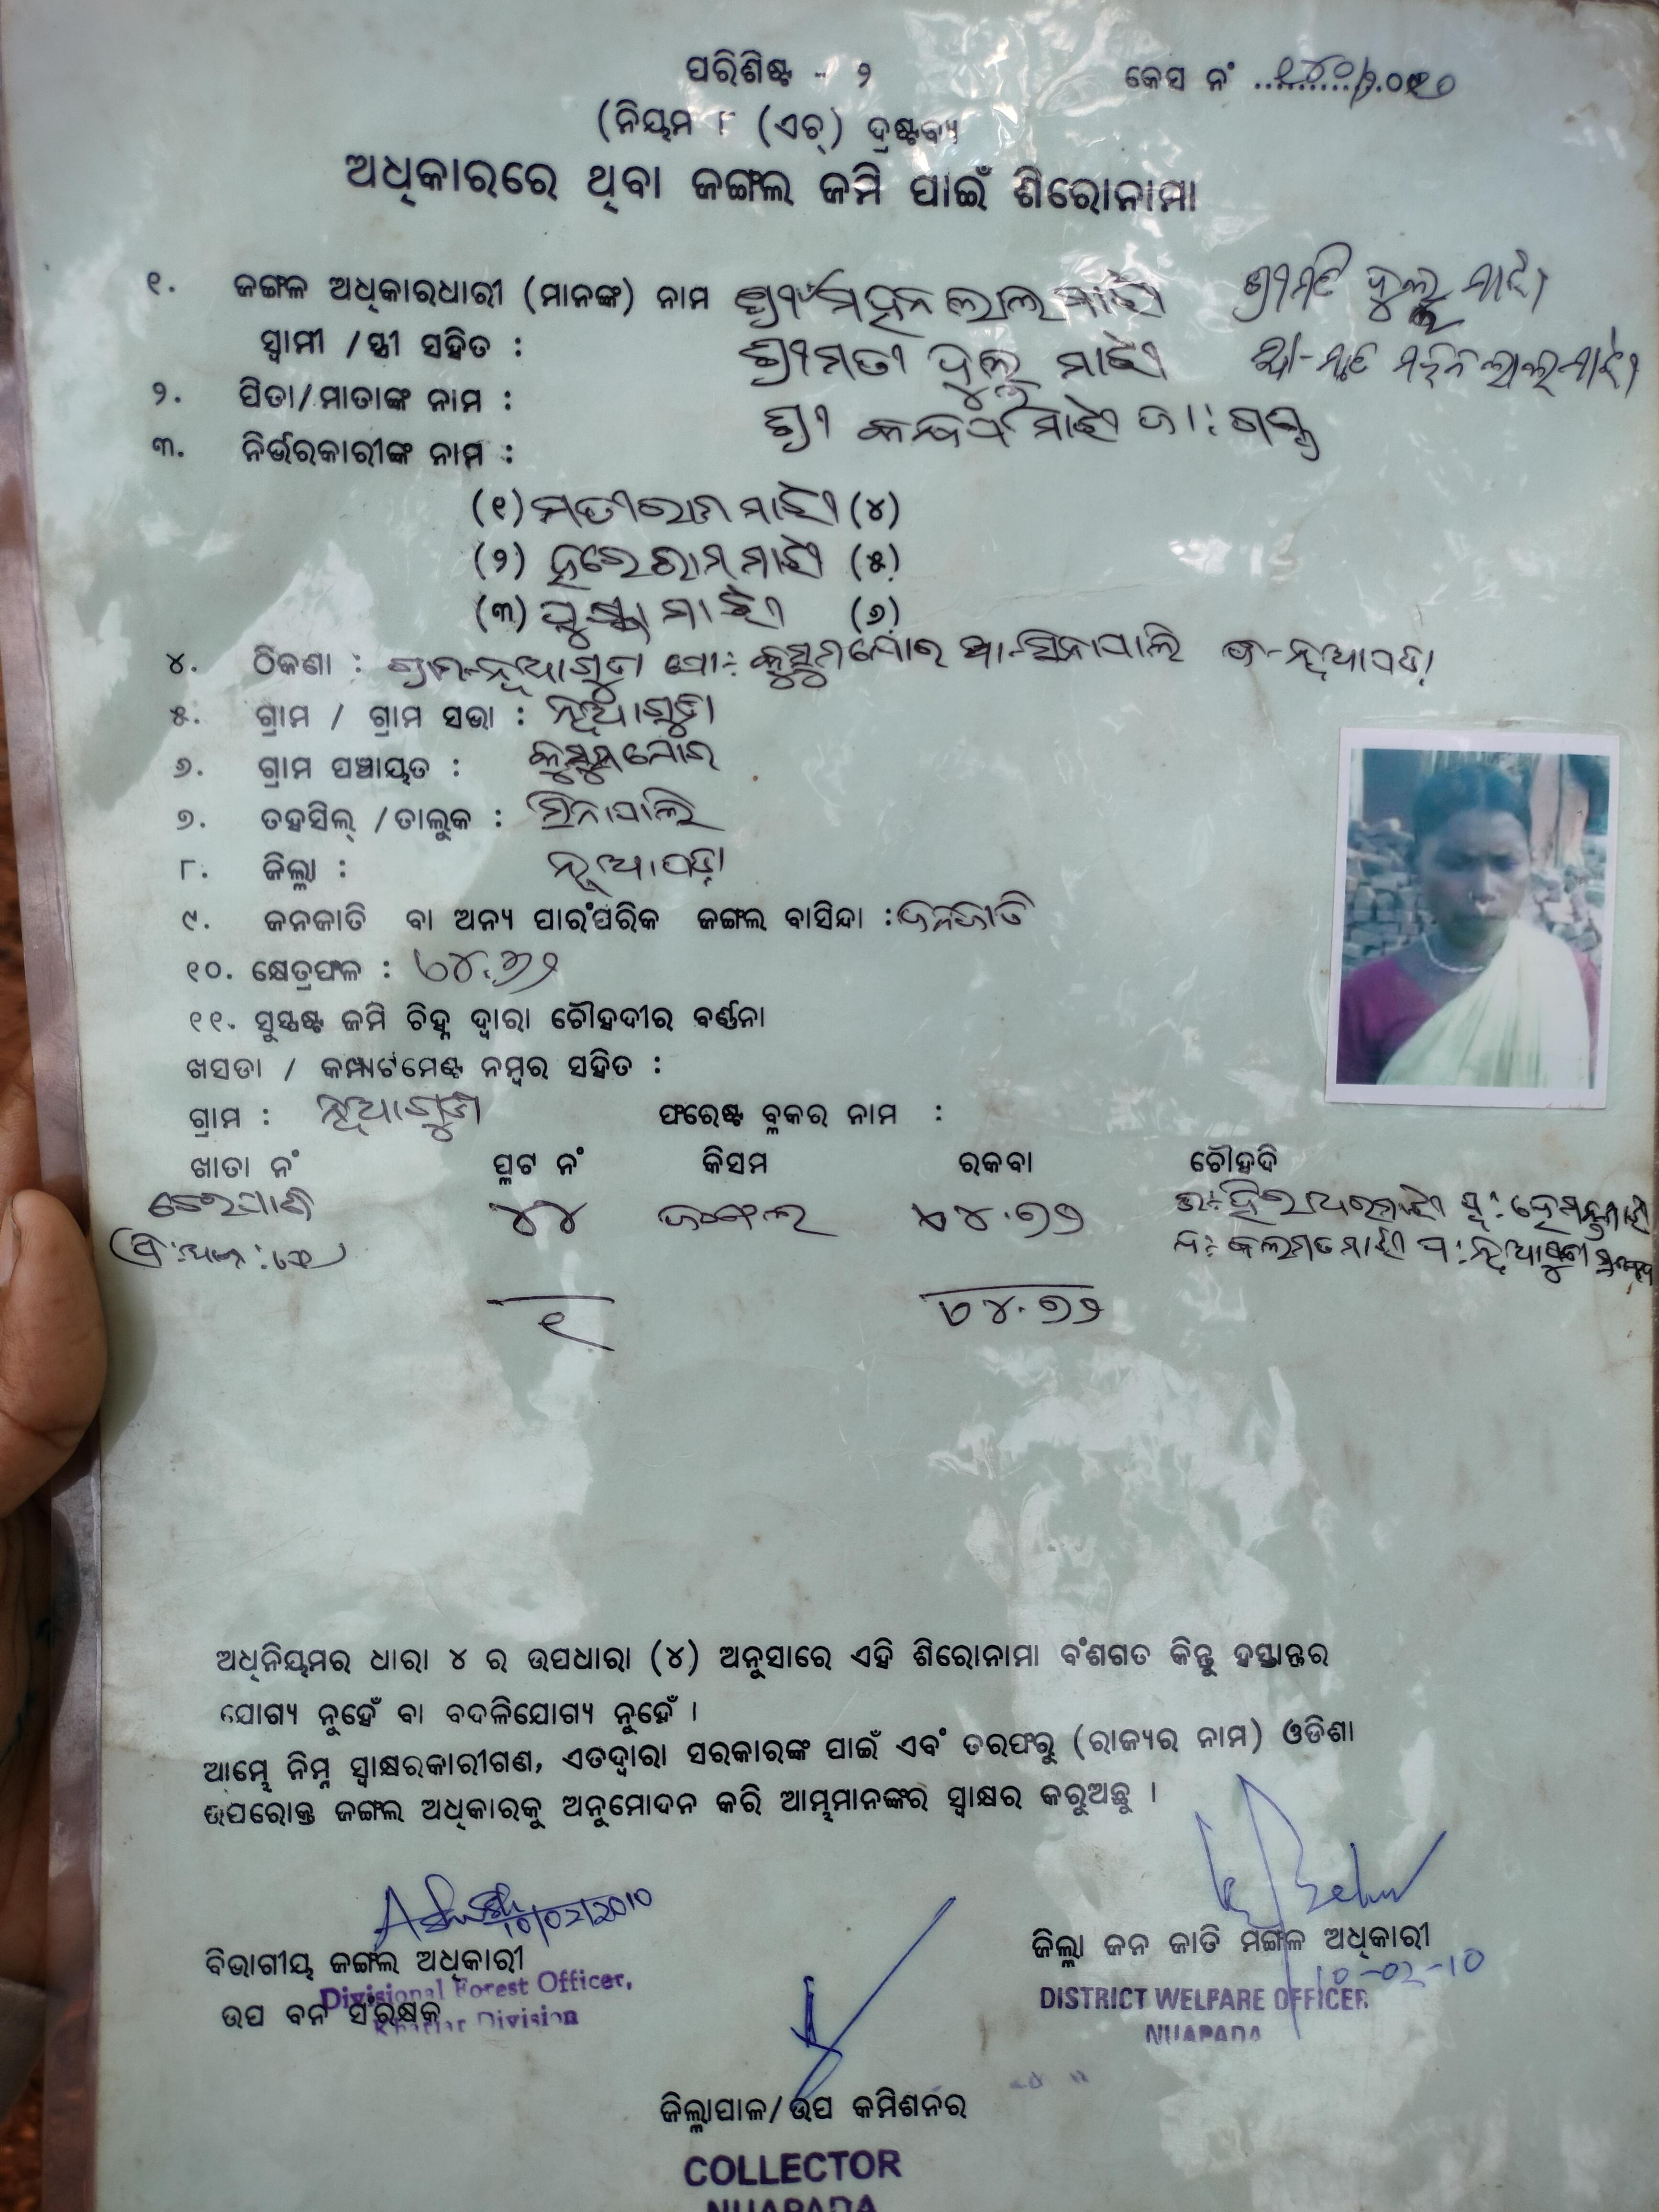 ପରିଶିଷ୍ଟ - ୨
କେସ ନଂ
(ନିୟମ ୮ (ଏଚ୍) ଦ୍ରଷ୍ଟବ୍ୟ
ଅଧିକାରରେ ଥିବା ଜଙ୍ଗଲ ଜମି ପାଇଁ ଶିରୋନାମା
୧. ଜଙ୍ଗଳ ଅଧିକାରଧାରୀ (ମାନଙ୍କ) ନାମ ଶ୍ରୀ ମହନ ଲାଲ ମାଝି ଶ୍ରୀମତି ଦୁଲୁ ମାଝି
ସ୍ୱାମୀ /ସ୍ତ୍ରୀ ସହିତ : ଶ୍ରୀମତୀ ଦୁଲୁ ମାଝି
୨. ପିତା/ମାତାଙ୍କ ନାମ : ଶ୍ରୀ ମାଝି ଜା:
୩. ନିର୍ଭରକାରୀଙ୍କ ନାମ :
(୧) ମାଝି (୪)
(୨) ହରେରାମ ମାଝି (୫)
(୩) ମାଝି (୬)
୪. ଠିକଣା : ଗ୍ରାମ-ନୂଆଗୁଡା ପୋ: ସିନାପାଲି ଜି-ନୂଆପଡ଼ା
୫. ଗ୍ରାମ / ଗ୍ରାମ ସଭା : ନୂଆଗୁଡା
୬. ଗ୍ରାମ ପଞ୍ଚାୟତ :
୭. ତହସିଲ୍ /ତାଲୁକ : ସିନାପାଲି
୮. ଜିଲ୍ଲା : ନୂଆପଡ଼ା
୯. ଜନଜାତି ବା ଅନ୍ୟ ପାରଂପରିକ ଜଙ୍ଗଲ ବାସିନ୍ଦା : ଜନଜାତି
୧୦. କ୍ଷେତ୍ରଫଳ :
୧୧. ସୁସ୍ପଷ୍ଟ ଜମି ଚିହ୍ନ ଦ୍ୱାରା ଚୌହଦୀର ବର୍ଣ୍ଣନା
ଖସଡା / କମ୍ପାର୍ଟମେଣ୍ଟ ନମ୍ବର ସହିତ :
ଗ୍ରାମ : ନୂଆଗୁଡା ଫରେଷ୍ଟ ବ୍ଲକର ନାମ :
ଖାତା ନଂ ପ୍ଲଟ ନଂ କିସମ ରକବା ଚୌହଦି
୪୪ ଜଙ୍ଗଲ
୧
ଅଧିନିୟମର ଧାରା ୪ ର ଉପଧାରା (୪) ଅନୁସାରେ ଏହି ଶିରୋନାମା ବଂଶଗତ କିନ୍ତୁ ହସ୍ତାନ୍ତର
ଯୋଗ୍ୟ ନୁହେଁ ବା ବଦଳିଯୋଗ୍ୟ ନୁହେଁ ।
ଆମ୍ଭେ ନିମ୍ନ ସ୍ୱାକ୍ଷରକାରୀଗଣ, ଏତଦ୍ୱାରା ସରକାରଙ୍କ ପାଇଁ ଏବଂ ତରଫରୁ (ରାଜ୍ୟର ନାମ) ଓଡିଶା
ଉପରୋକ୍ତ ଜଙ୍ଗଲ ଅଧିକାରକୁ ଅନୁମୋଦନ କରି ଆମ୍ଭମାନଙ୍କର ସ୍ୱାକ୍ଷର କରୁଅଛୁ ।
10/02/2010
ବିଭାଗୀୟ ଜଙ୍ଗଲ ଅଧିକାରୀ
Divisional Forest Officer,
ଉପ ବନ ସଂରକ୍ଷକ
Khariar Division
ଜିଲ୍ଲା ଜନ ଜାତି ମଙ୍ଗଳ ଅଧିକାରୀ
10-02-10
DISTRICT WELFARE OFFICER
NUAPADA
ଜିଲ୍ଲାପାଳ/ଉପ କମିଶନର
COLLECTOR
NUAPADA